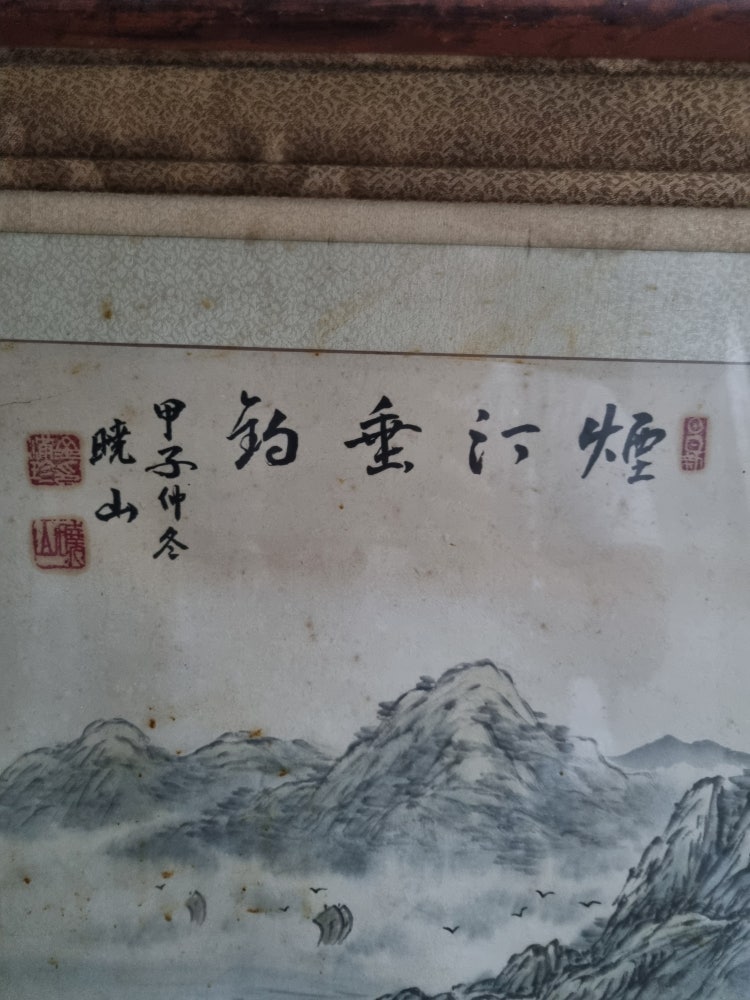 煙汀垂釣
甲子仲冬
曉山